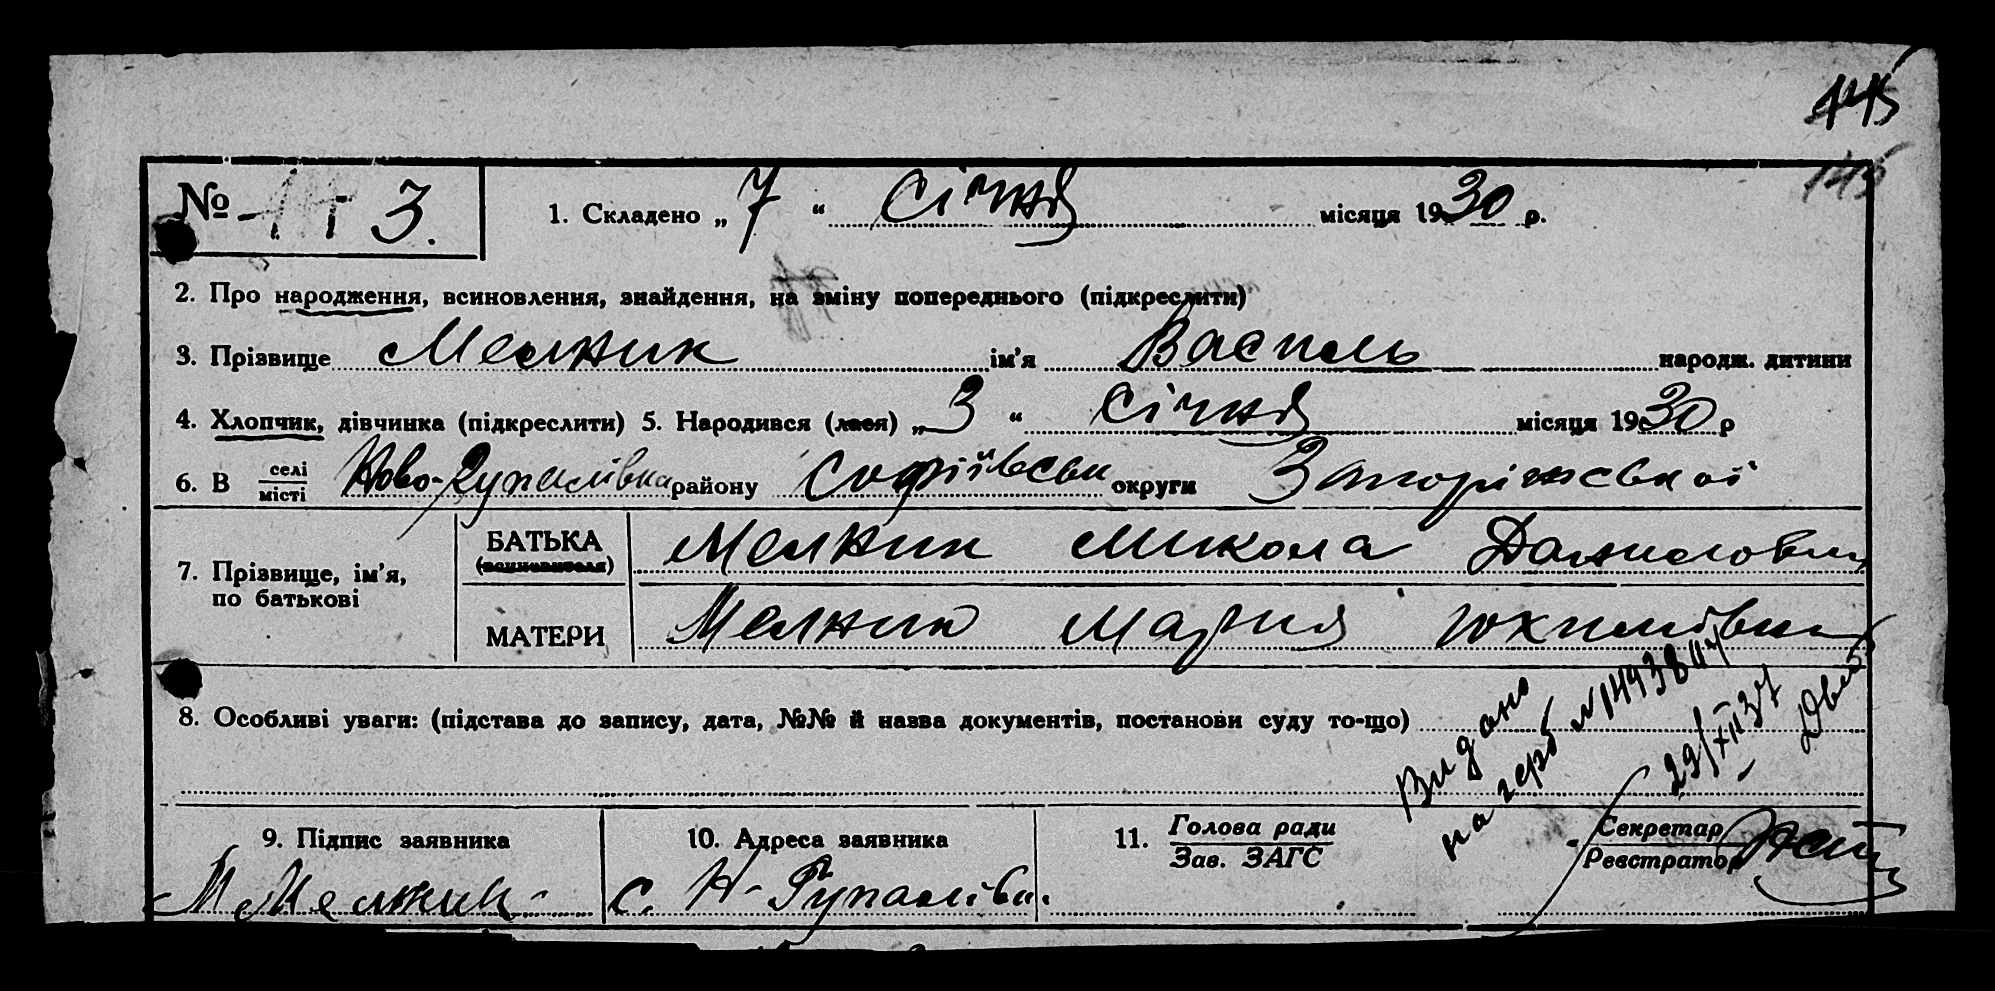 145
145
№ 3.
1. Складено „ 7 “ січня місяця 1930 р.
2. Про народження, всиновлення, знайдення, на зміну попереднього (підкреслити)
3. Прізвище Мелник ім’я Василь народж. дитини
4. Хлопчик, дівчинка (підкреслити) 5. Народився (лася) „ 3 “ січня місяця 1930 р
6. В селі місті Ново-Рупалівка району Софіївськ округи Запоріжської
7. Прізвище, ім’я, по батькові
БАТЬКА (всиновителя) Мелник Микола Данилович
МАТЕРИ Мелник Мария Юхимівна
8. Особливі уваги: (підстава до запису, дата, №№ й назва документів, постанови суду то-що)
Видано
на герб №
29/XII 37
9. Підпис заявника
М Мелник
10. Адреса заявника
с. Н-Рупалівк.
11. Голова ради
Зав. ЗАГС
Секретар
Реєстратор